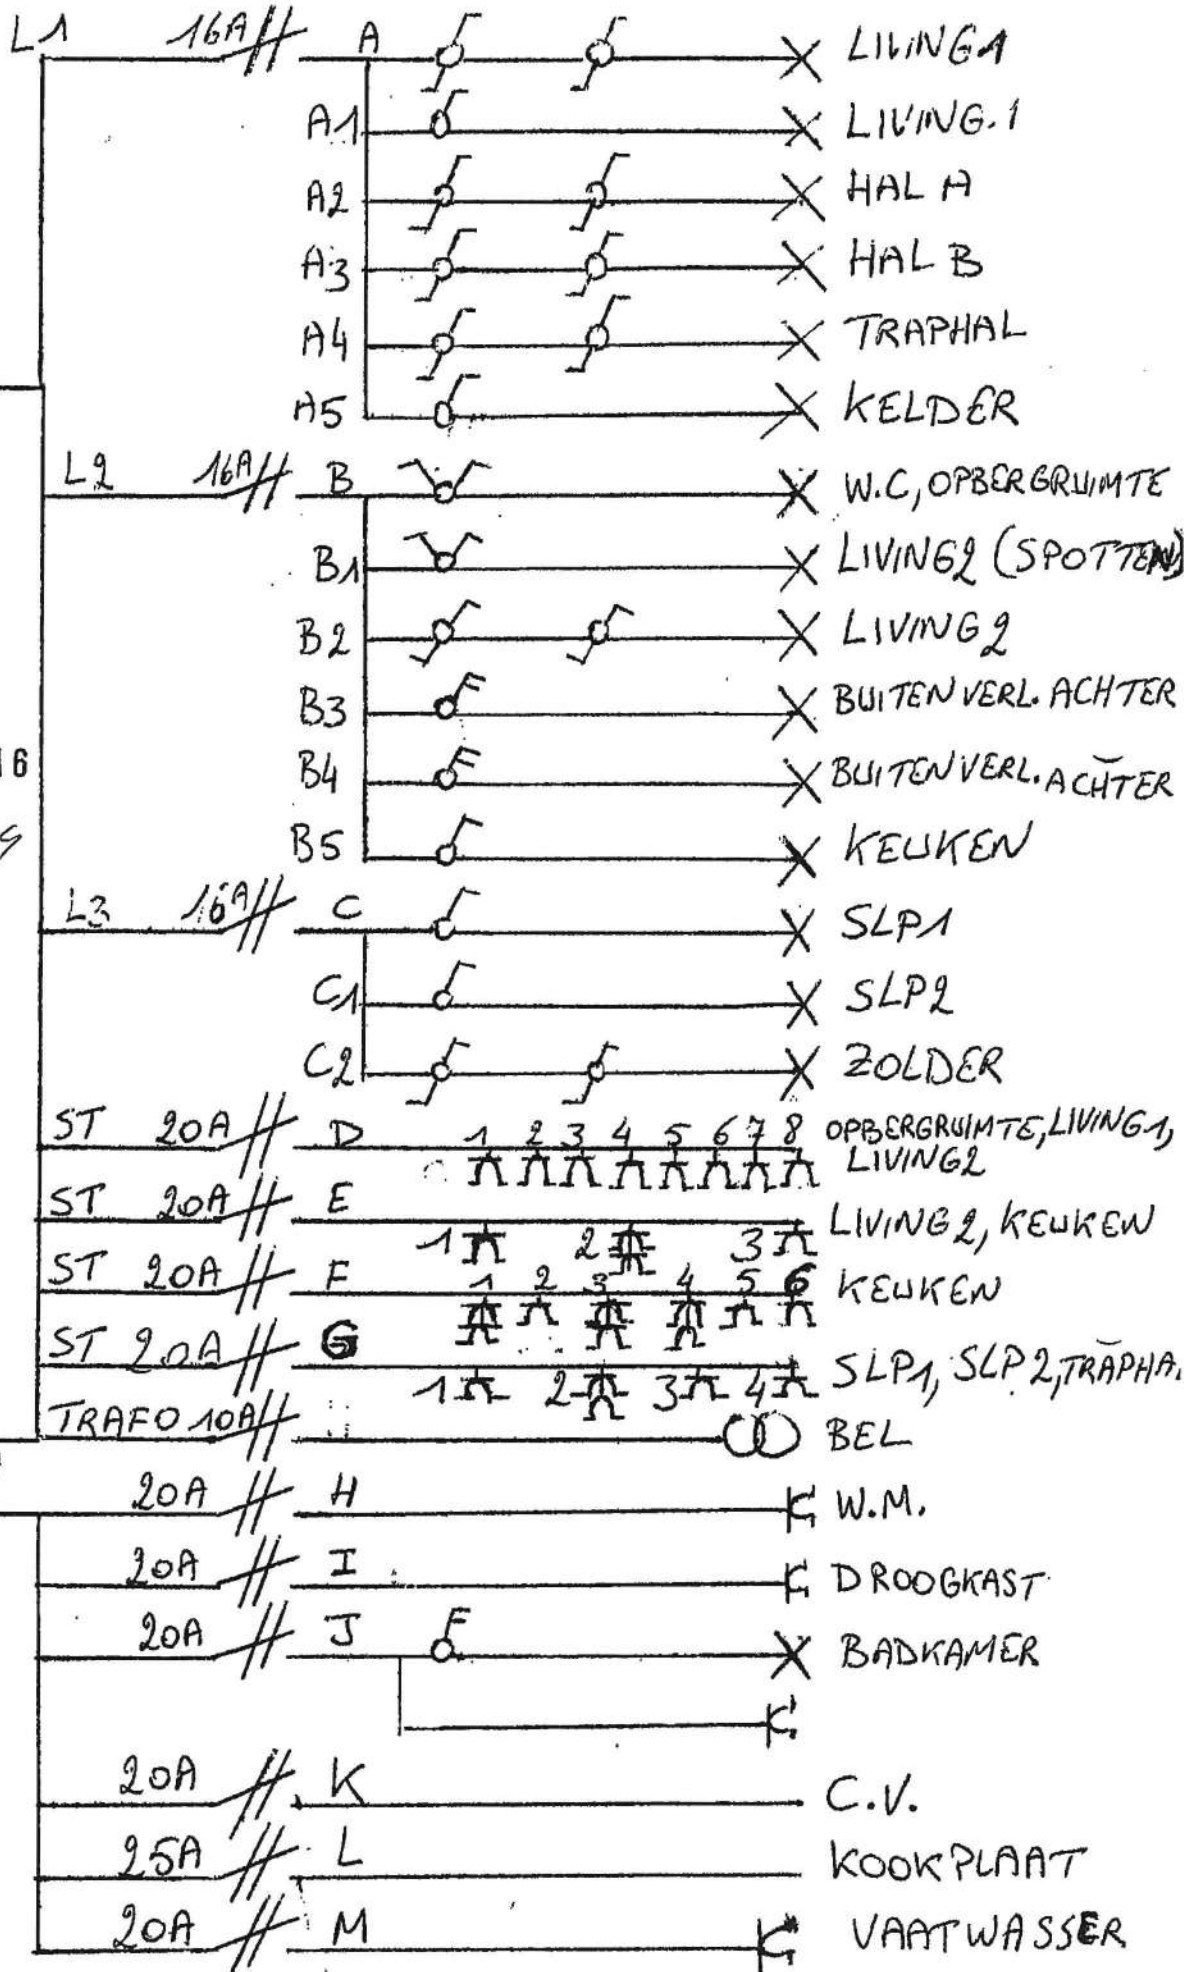 L1 16A A LIVING1
A1 LIVING.1
A2 HAL A
A3 HAL B
A4 TRAPHAL
A5 KELDER
L2 16A B W.C, OPBERGRUIMTE
B1 LIVING2 (SPOTTEN)
B2 LIVING2
B3 BUITENVERL. ACHTER
16
B4 BUITENVERL. ACHTER
B5 KEUKEN
L3 16A C SLP1
C1 SLP2
C2 ZOLDER
ST 20A D 1 2 3 4 5 6 7 8 OPBERGRUIMTE, LIVING1,
LIVING2
ST 20A E LIVING2, KEUKEN
1 2 3
ST 20A F 1 2 3 4 5 6 KEUKEN
ST 20A G SLP1, SLP2, TRAPHA.
1 2 3 4
TRAFO 10A BEL
20A H W.M.
20A I DROOGKAST
20A J BADKAMER
20A K C.V.
25A L KOOKPLAAT
20A M VAATWASSER